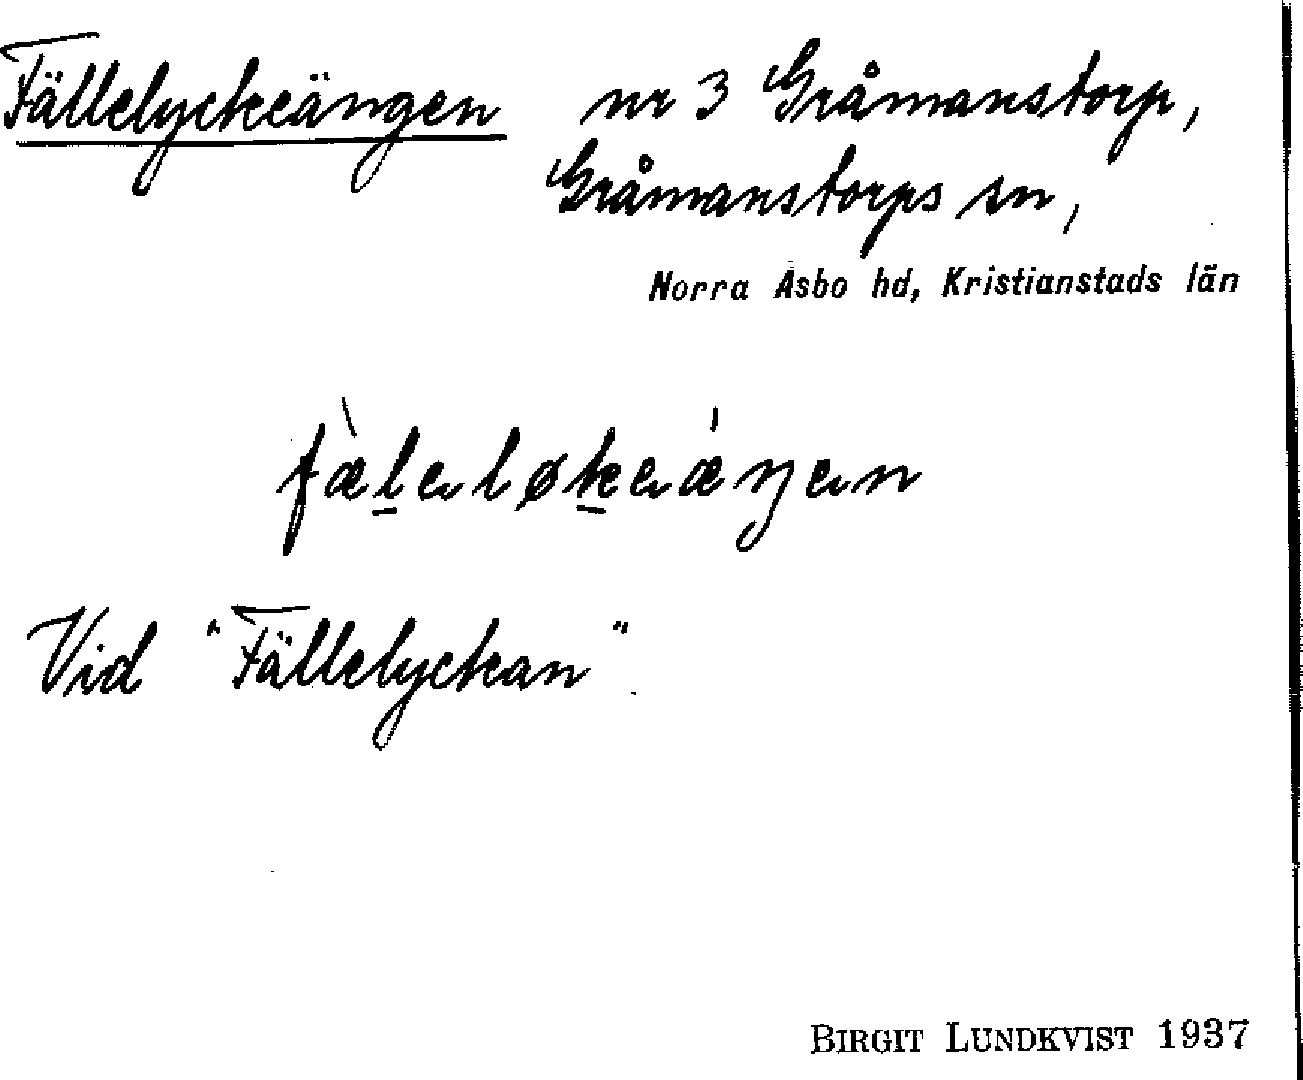 Fälleлyckeängen nr 3 Gråmanstorp,
Gråmanstorps sn,
Norra Åsbo hd, Kristianstads län
fæ̀l̲eløk̲eǽŋen
Vid "Fällelyckan".
BIRGIT LUNDKVIST 1937